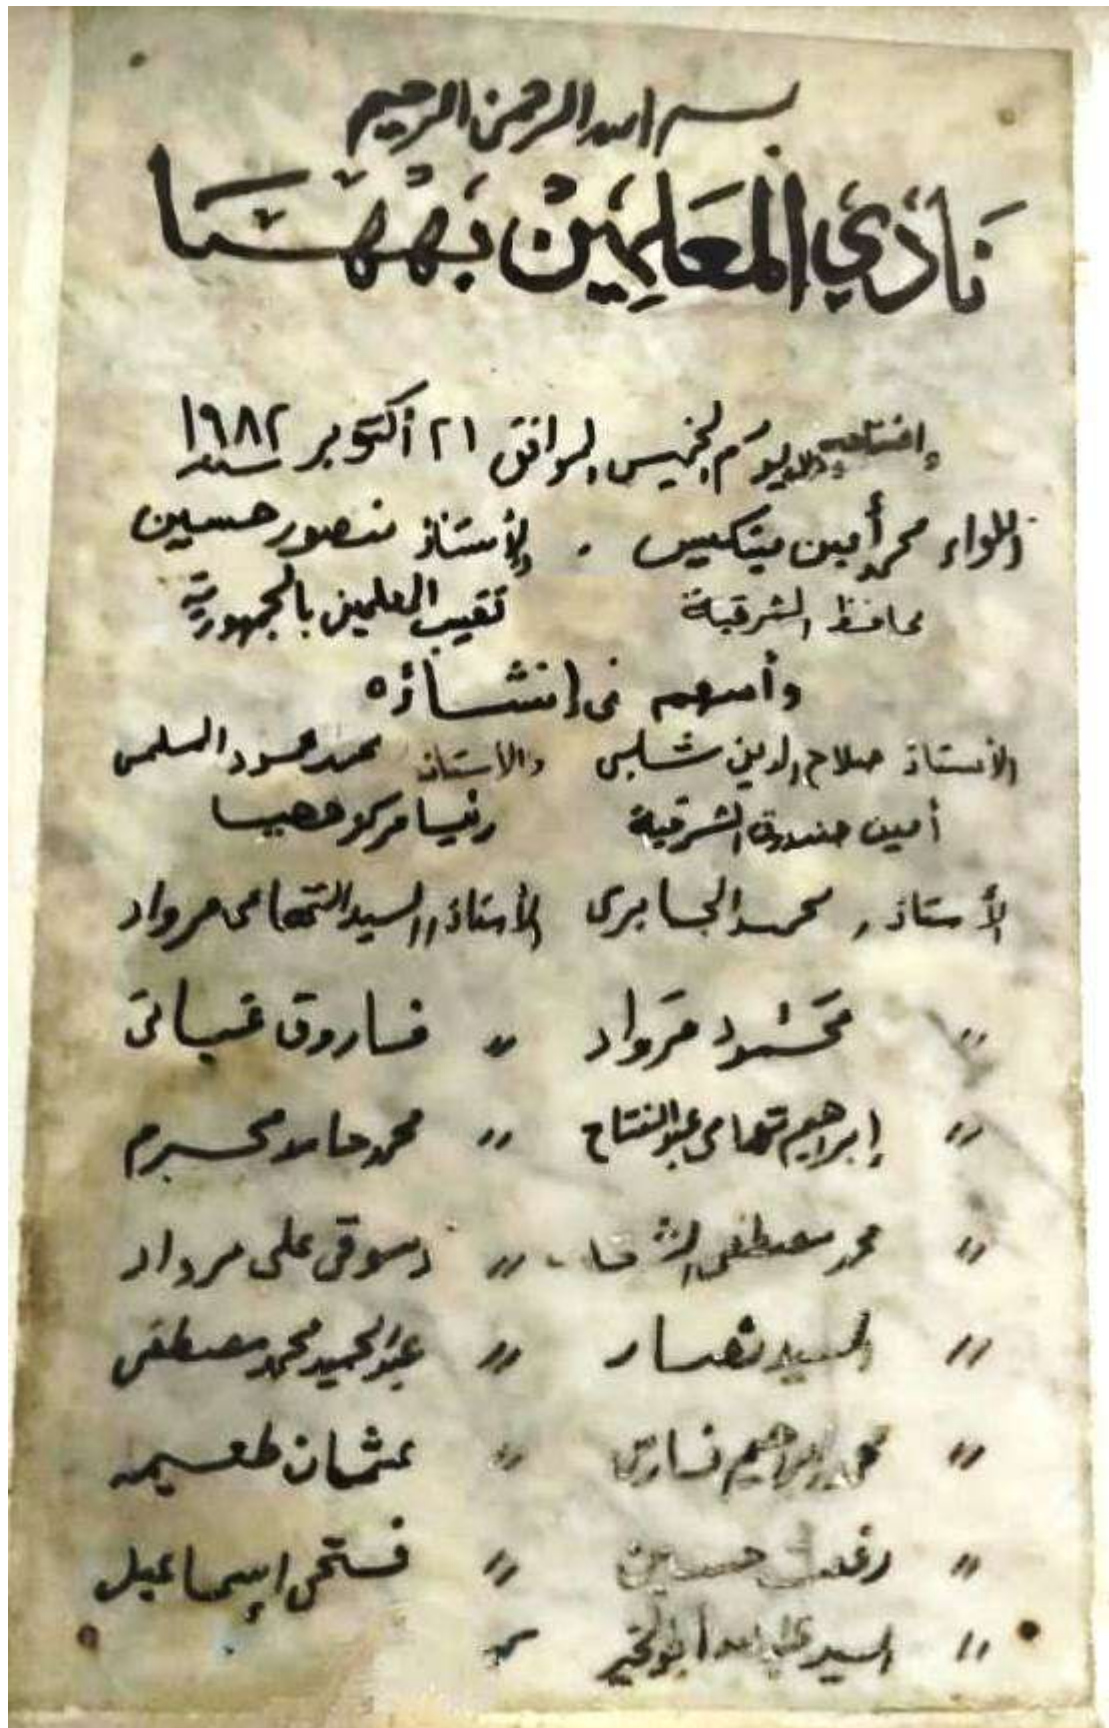 بسم الله الرحمن الرحيم
نَادِي المعَلِمِيْن بِهْهيَا
إفتتاحه يوم الخميس الموافق ٢١ أكتوبر سنة ١٩٨٢
اللواء محمد أمين ميتكيس . والأستاذ منصور حسين
محافظ الشرقية نقيب المعلمين بالجمهورية
وأسهم فى إنشاؤه
الأستاذ صلاح الدين شلبى والأستاذ محمد محمود السلمى
أمين صندوق الشرقية رئيسا مركز ههيا
الأستاذ, محمد الجابرى الأستاذ,, السيد التهامى مرواد
〃 محمود مرواد 〃 فاروق غيباتى
〃 إبراهيم تهامى عبدالفتاح 〃 محمد حامد محرم
〃 محمد مصطفى 〃 دسوقى على مرواد
〃 السيد نصار 〃 عبدالحميد محمد مصطفى
〃 إبراهيم 〃 عثمان طعيمه
〃 رفعت حسين 〃 فتحى إسماعيل
〃 السيد عبدالله أبوالخير 〃